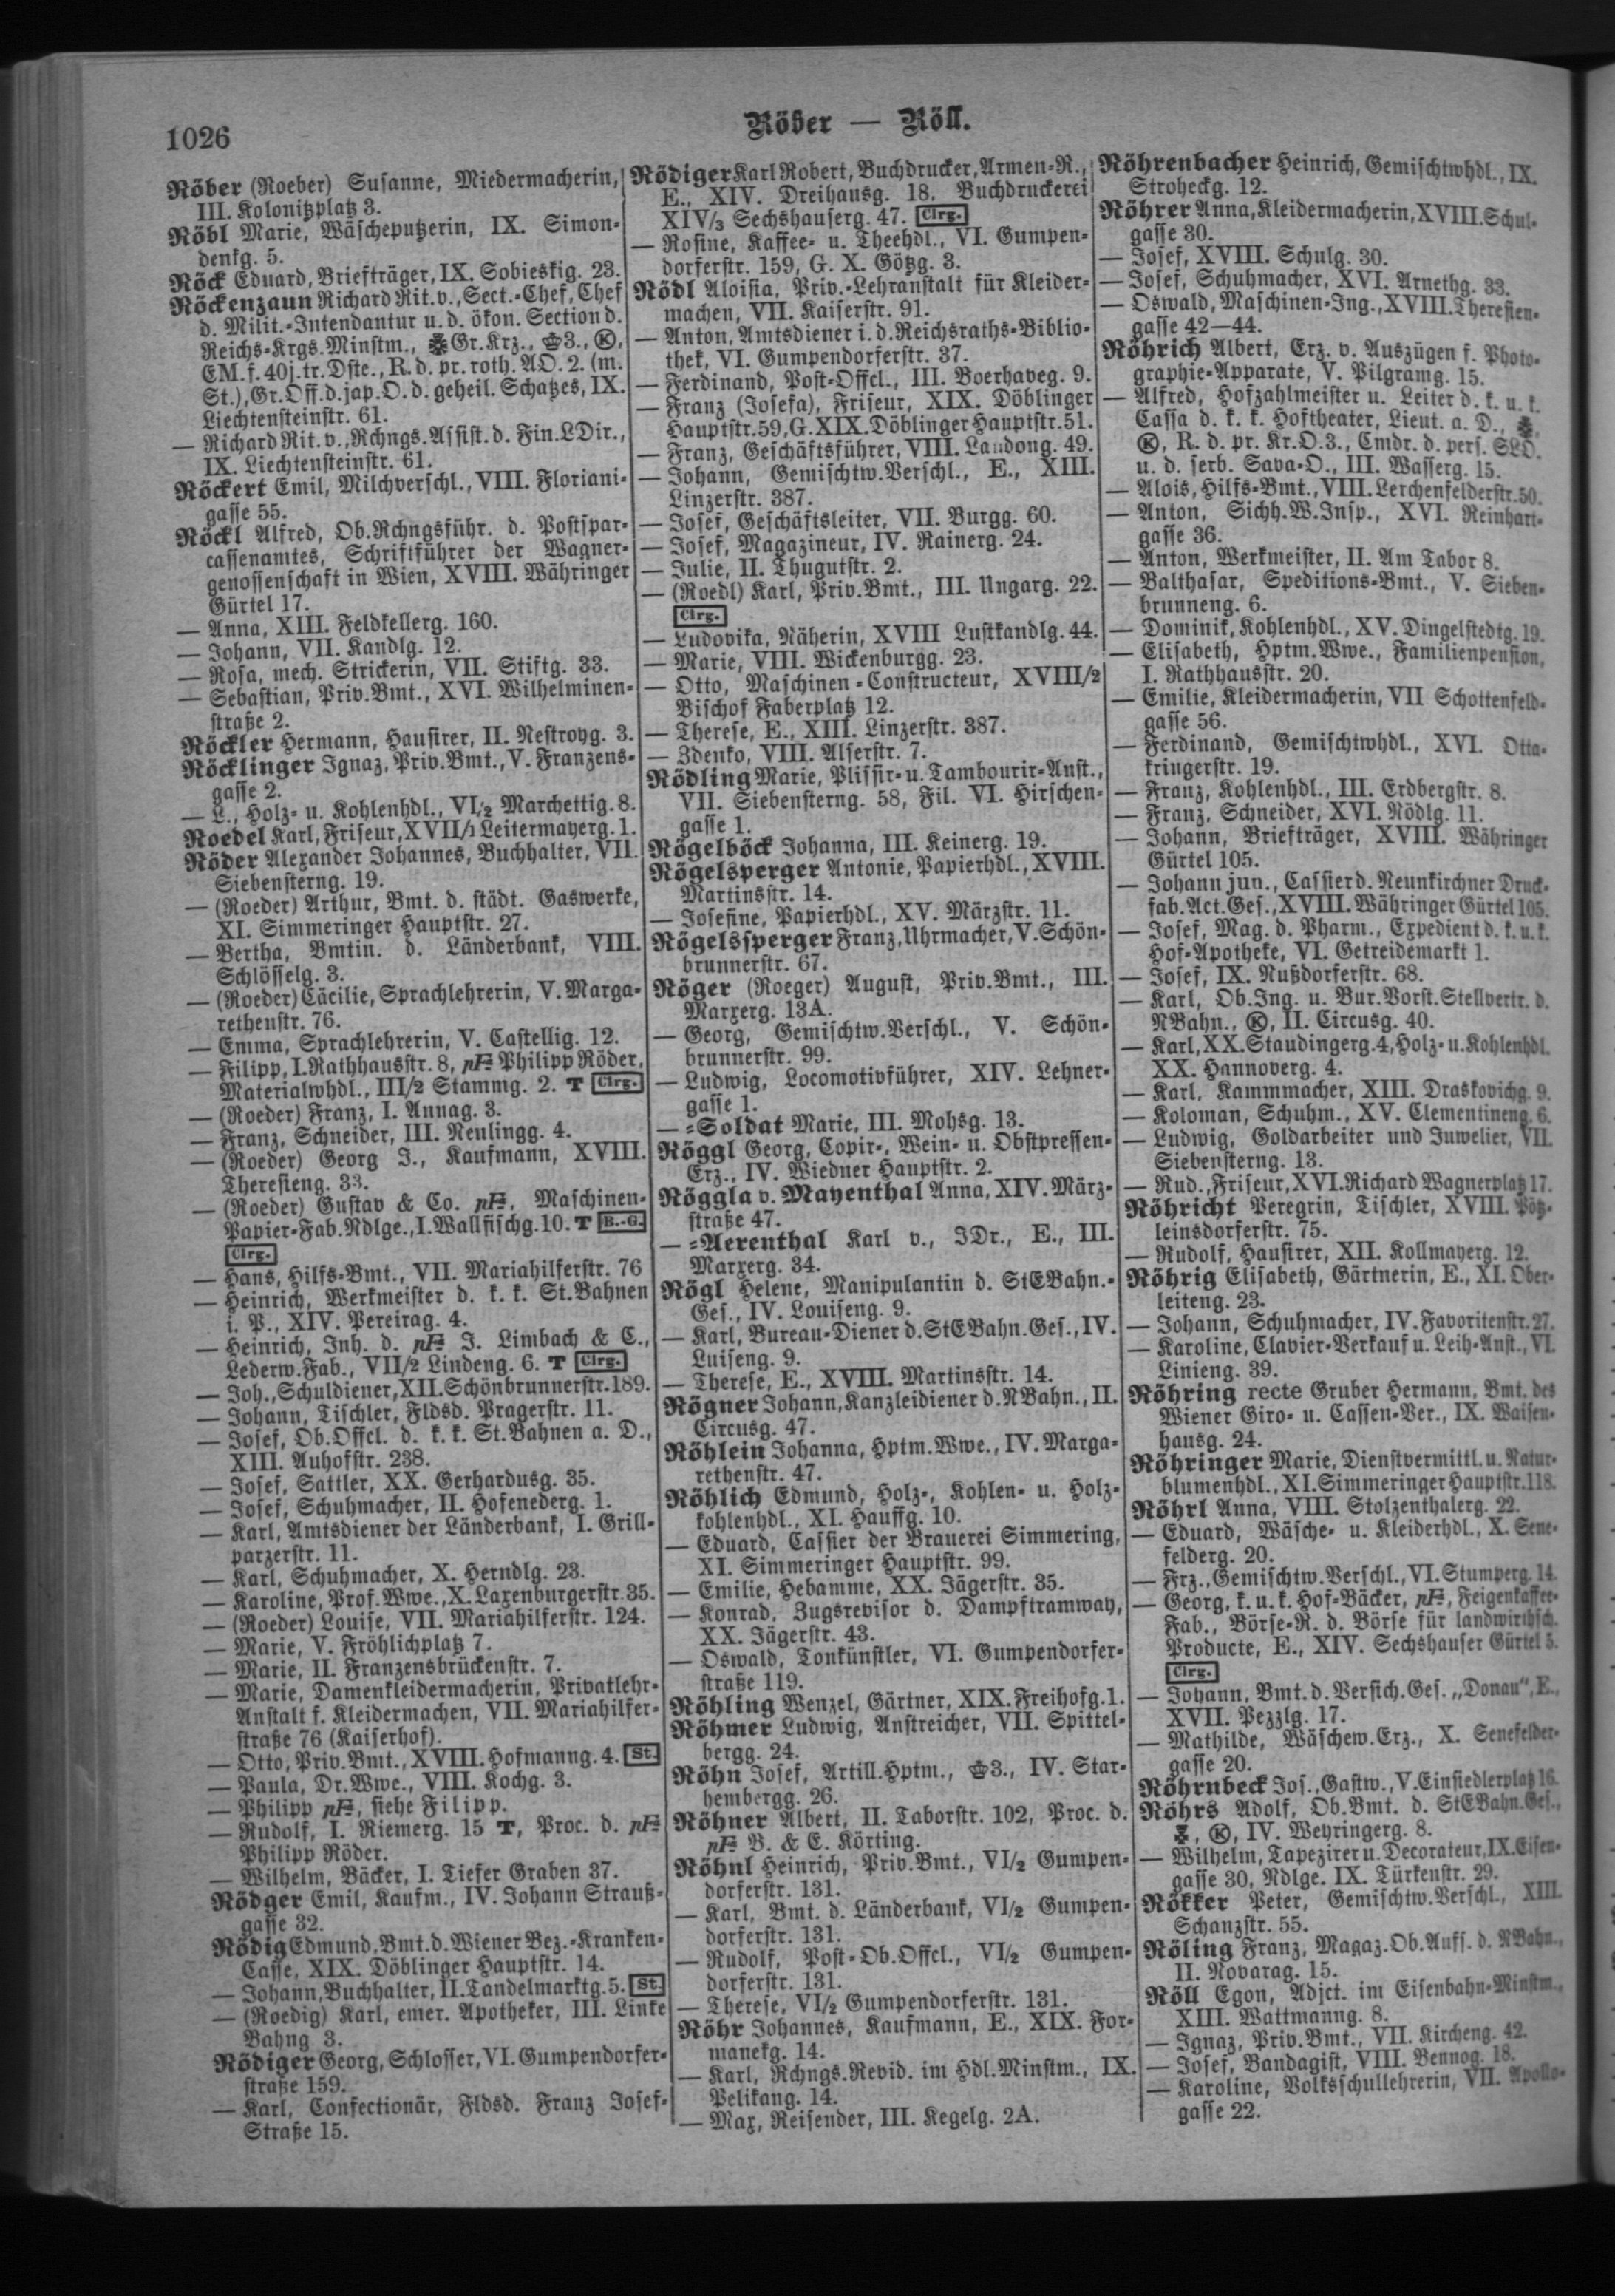 1026
Röder — Röll.
Röber (Roeber) Susanne, Miedermacherin,
III. Kolonitzplatz 3.
Röbl Marie, Wäscheputzerin, IX. Simon-
denkg. 5.
Röck Eduard, Briefträger, IX. Sobieskig. 23.
Röckenzaun Richard Rit. v., Sect.-Chef, Chef
d. Milit.-Intendantur u. d. ökon. Section d.
Reichs-Krgs.Minstm., Gr.Krz., 3., Ⓚ,
EM. f. 40j. tr. Dste., R. d. pr. roth. AO. 2. (m.
St.), Gr.Off. d. jap. O. d. geheil. Schatzes, IX.
Liechtensteinstr. 61.
— Richard Rit. v., Rchngs.Assist. d. Fin.LDir.,
IX. Liechtensteinstr. 61.
Röckert Emil, Milchverschl., VIII. Floriani-
gasse 55.
Röckl Alfred, Ob.Rchngsführ. d. Postspar-
cassenamtes, Schriftführer der Wagner-
genossenschaft in Wien, XVIII. Währinger
Gürtel 17.
— Anna, XIII. Feldkellerg. 160.
— Johann, VII. Kandlg. 12.
— Rosa, mech. Strickerin, VII. Stiftg. 33.
— Sebastian, Priv.Bmt., XVI. Wilhelminen-
straße 2.
Röckler Hermann, Hausirer, II. Nestroyg. 3.
Röcklinger Ignaz, Priv.Bmt., V. Franzens-
gasse 2.
— L., Holz- u. Kohlenhdl., VI/2 Marchettig. 8.
Roedel Karl, Friseur, XVII/1 Leitermayerg. 1.
Röder Alexander Johannes, Buchhalter, VII.
Siebensterng. 19.
— (Roeder) Arthur, Bmt. d. städt. Gaswerke,
XI. Simmeringer Hauptstr. 27.
— Bertha, Bmtin. d. Länderbank, VIII.
Schlösselg. 3.
— (Roeder) Cäcilie, Sprachlehrerin, V. Marga-
rethenstr. 76.
— Emma, Sprachlehrerin, V. Castellig. 12.
— Filipp, I. Rathhausstr. 8, pF Philipp Röder,
Materialwhdl., III/2 Stammg. 2. T Clrg.
— (Roeder) Franz, I. Annag. 3.
— Franz, Schneider, III. Neulingg. 4.
— (Roeder) Georg J., Kaufmann, XVIII.
Theresieng. 33.
— (Roeder) Gustav & Co. pF, Maschinen-
Papier-Fab.Ndlge., I. Wallfischg. 10. T B.-G.
Clrg.
— Hans, Hilfs-Bmt., VII. Mariahilferstr. 76
— Heinrich, Werkmeister d. k. k. St.Bahnen
i. P., XIV. Pereirag. 4.
— Heinrich, Inh. d. pF J. Limbach & C.,
Lederw.Fab., VII/2 Lindeng. 6. T Clrg.
— Joh., Schuldiener, XII. Schönbrunnerstr. 189.
— Johann, Tischler, Fldsd. Pragerstr. 11.
— Josef, Ob.Offcl. d. k. k. St.Bahnen a. D.,
XIII. Auhofstr. 238.
— Josef, Sattler, XX. Gerhardusg. 35.
— Josef, Schuhmacher, II. Hofenederg. 1.
— Karl, Amtsdiener der Länderbank, I. Grill-
parzerstr. 11.
— Karl, Schuhmacher, X. Herndlg. 23.
— Karoline, Prof.Wwe., X. Laxenburgerstr. 35.
— (Roeder) Louise, VII. Mariahilferstr. 124.
— Marie, V. Fröhlichplatz 7.
— Marie, II. Franzensbrückenstr. 7.
— Marie, Damenkleidermacherin, Privatlehr-
Anstalt f. Kleidermachen, VII. Mariahilfer-
straße 76 (Kaiserhof).
— Otto, Priv.Bmt., XVIII. Hofmanng. 4. St.
— Paula, Dr.Wwe., VIII. Kochg. 3.
— Philipp pF, siehe Filipp.
— Rudolf, I. Riemerg. 15 T, Proc. d. pF
Philipp Röder.
— Wilhelm, Bäcker, I. Tiefer Graben 37.
Rödger Emil, Kaufm., IV. Johann Strauß-
gasse 32.
Rödig Edmund, Bmt. d. Wiener Bez.-Kranken-
Casse, XIX. Döblinger Hauptstr. 14.
— Johann, Buchhalter, II. Tandelmarktg. 5. St.
— (Roedig) Karl, emer. Apotheker, III. Linke
Bahng 3.
Rödiger Georg, Schlosser, VI. Gumpendorfer-
straße 159.
— Karl, Confectionär, Fldsd. Franz Josef-
Straße 15.
Rödiger Karl Robert, Buchdrucker, Armen-R.,
E., XIV. Dreihausg. 18, Buchdruckerei
XIV/3 Sechshauserg. 47. Clrg.
— Rosine, Kaffee- u. Theehdl., VI. Gumpen-
dorferstr. 159, G. X. Götzg. 3.
Rödl Aloisia, Priv.-Lehranstalt für Kleider-
machen, VII. Kaiserstr. 91.
— Anton, Amtsdiener i. d. Reichsraths-Biblio-
thek, VI. Gumpendorferstr. 37.
— Ferdinand, Post-Offcl., III. Boerhaveg. 9.
— Franz (Josefa), Friseur, XIX. Döblinger
Hauptstr. 59, G. XIX. Döblinger Hauptstr. 51.
— Franz, Geschäftsführer, VIII. Laudong. 49.
— Johann, Gemischtw.Verschl., E., XIII.
Linzerstr. 387.
— Josef, Geschäftsleiter, VII. Burgg. 60.
— Josef, Magazineur, IV. Rainerg. 24.
— Julie, II. Thugutstr. 2.
— (Roedl) Karl, Priv.Bmt., III. Ungarg. 22.
Clrg.
— Ludovika, Näherin, XVIII Lustkandlg. 44.
— Marie, VIII. Wickenburgg. 23.
— Otto, Maschinen-Constructeur, XVIII/2
Bischof Faberplatz 12.
— Therese, E., XIII. Linzerstr. 387.
— Zdenko, VIII. Alserstr. 7.
Rödling Marie, Plissir- u. Tambourir-Anst.,
VII. Siebensterng. 58, Fil. VI. Hirschen-
gasse 1.
Rögelböck Johanna, III. Keinerg. 19.
Rögelsperger Antonie, Papierhdl., XVIII.
Martinsstr. 14.
— Josefine, Papierhdl., XV. Märzstr. 11.
Rögelssperger Franz, Uhrmacher, V. Schön-
brunnerstr. 67.
Röger (Roeger) August, Priv.Bmt., III.
Marxerg. 13A.
— Georg, Gemischtw.Verschl., V. Schön-
brunnerstr. 99.
— Ludwig, Locomotivführer, XIV. Lehner-
gasse 1.
— -Soldat Marie, III. Mohsg. 13.
Röggl Georg, Copir-, Wein- u. Obstpressen-
Erz., IV. Wiedner Hauptstr. 2.
Röggla v. Mayenthal Anna, XIV. März-
straße 47.
— -Aerenthal Karl v., JDr., E., III.
Marxerg. 34.
Rögl Helene, Manipulantin d. StEBahn.-
Ges., IV. Louiseng. 9.
— Karl, Bureau-Diener d. StEBahn.Ges., IV.
Luiseng. 9.
— Therese, E., XVIII. Martinsstr. 14.
Rögner Johann, Kanzleidiener d. NBahn., II.
Circusg. 47.
Röhlein Johanna, Hptm.Wwe., IV. Marga-
rethenstr. 47.
Röhlich Edmund, Holz-, Kohlen- u. Holz-
kohlenhdl., XI. Hauffg. 10.
— Eduard, Cassier der Brauerei Simmering,
XI. Simmeringer Hauptstr. 99.
— Emilie, Hebamme, XX. Jägerstr. 35.
— Konrad, Zugsrevisor d. Dampftramway,
XX. Jägerstr. 43.
— Oswald, Tonkünstler, VI. Gumpendorfer-
straße 119.
Röhling Wenzel, Gärtner, XIX. Freihofg. 1.
Röhmer Ludwig, Anstreicher, VII. Spittel-
bergg. 24.
Röhn Josef, Artill.Hptm., 3., IV. Star-
hembergg. 26.
Röhner Albert, II. Taborstr. 102, Proc. d.
pF B. & E. Körting.
Röhnl Heinrich, Priv.Bmt., VI/2 Gumpen-
dorferstr. 131.
— Karl, Bmt. d. Länderbank, VI/2 Gumpen-
dorferstr. 131.
— Rudolf, Post-Ob.Offcl., VI/2 Gumpen-
dorferstr. 131.
— Therese, VI/2 Gumpendorferstr. 131.
Röhr Johannes, Kaufmann, E., XIX. For-
manekg. 14.
— Karl, Rchngs.Revid. im Hdl.Minstm., IX.
Pelikang. 14.
— Max, Reisender, III. Kegelg. 2A.
Röhrenbacher Heinrich, Gemischtwhdl., IX.
Stroheckg. 12.
Röhrer Anna, Kleidermacherin, XVIII. Schul-
gasse 30.
— Josef, XVIII. Schulg. 30.
— Josef, Schuhmacher, XVI. Arnethg. 33.
— Oswald, Maschinen-Ing., XVIII. Theresien-
gasse 42—44.
Röhrich Albert, Erz. v. Auszügen f. Photo-
graphie-Apparate, V. Pilgramg. 15.
— Alfred, Hofzahlmeister u. Leiter d. k. u. k.
Cassa d. k. k. Hoftheater, Lieut. a. D.,
Ⓚ, R. d. pr. Kr.O.3., Cmdr. d. pers. SLO.
u. d. serb. Sava-O., III. Wasserg. 15.
— Alois, Hilfs-Bmt., VIII. Lerchenfelderstr. 50.
— Anton, Sichh.W.Insp., XVI. Reinhart-
gasse 36.
— Anton, Werkmeister, II. Am Tabor 8.
— Balthasar, Speditions-Bmt., V. Sieben-
brunneng. 6.
— Dominik, Kohlenhdl., XV. Dingelstedtg. 19.
— Elisabeth, Hptm.Wwe., Familienpension,
I. Rathhausstr. 20.
— Emilie, Kleidermacherin, VII Schottenfeld-
gasse 56.
— Ferdinand, Gemischtwhdl., XVI. Otta-
kringerstr. 19.
— Franz, Kohlenhdl., III. Erdbergstr. 8.
— Franz, Schneider, XVI. Nödlg. 11.
— Johann, Briefträger, XVIII. Währinger
Gürtel 105.
— Johann jun., Cassier d. Neunkirchner Druck-
fab.Act.Ges., XVIII. Währinger Gürtel 105.
— Josef, Mag. d. Pharm., Expedient d. k. u. k.
Hof-Apotheke, VI. Getreidemarkt 1.
— Josef, IX. Nußdorferstr. 68.
— Karl, Ob.Ing. u. Bur.Vorst.Stellvertr. d.
NBahn., Ⓚ, II. Circusg. 40.
— Karl, XX. Staudingerg. 4, Holz- u. Kohlenhdl.
XX. Hannoverg. 4.
— Karl, Kammmacher, XIII. Draskovichg. 9.
— Koloman, Schuhm., XV. Clementineng. 6.
— Ludwig, Goldarbeiter und Juwelier, VII.
Siebensterng. 13.
— Rud., Friseur, XVI. Richard Wagnerplatz 17.
Röhricht Peregrin, Tischler, XVIII. Pötz-
leinsdorferstr. 75.
— Rudolf, Hausirer, XII. Kollmayerg. 12.
Röhrig Elisabeth, Gärtnerin, E., XI. Ober-
leiteng. 23.
— Johann, Schuhmacher, IV. Favoritenstr. 27.
— Karoline, Clavier-Verkauf u. Leih-Anst., VI.
Linieng. 39.
Röhring recte Gruber Hermann, Bmt. des
Wiener Giro- u. Cassen-Ver., IX. Waisen-
hausg. 24.
Röhringer Marie, Dienstvermittl. u. Natur-
blumenhdl., XI. Simmeringer Hauptstr. 118.
Röhrl Anna, VIII. Stolzenthalerg. 22.
— Eduard, Wäsche- u. Kleiderhdl., X. Sene-
felderg. 20.
— Frz., Gemischtw.Verschl., VI. Stumperg. 14.
— Georg, k. u. k. Hof-Bäcker, pF, Feigenkaffee-
Fab., Börse-R. d. Börse für landwirthsch.
Producte, E., XIV. Sechshauser Gürtel 5.
Clrg.
— Johann, Bmt. d. Versich.Ges. „Donau", E.,
XVII. Pezzlg. 17.
— Mathilde, Wäschew.Erz., X. Senefelder-
gasse 20.
Röhrnbeck Jos., Gastw., V. Einsiedlerplatz 16.
Röhrs Adolf, Ob.Bmt. d. StEBahn.Ges.,
Ⓚ, IV. Weyringerg. 8.
— Wilhelm, Tapezirer u. Decorateur, IX. Eisen-
gasse 30, Ndlge. IX. Türkenstr. 29.
Rökker Peter, Gemischtw.Verschl., XIII.
Schanzstr. 55.
Röling Franz, Magaz.Ob.Aufs. d. NBahn.,
II. Novarag. 15.
Röll Egon, Adjct. im Eisenbahn-Minstm.,
XIII. Wattmanng. 8.
— Ignaz, Priv.Bmt., VII. Kircheng. 42.
— Josef, Bandagist, VIII. Bennog. 18.
— Karoline, Volksschullehrerin, VII. Apollo-
gasse 22.